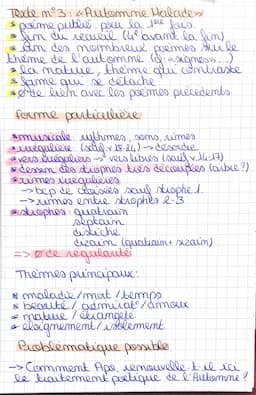 Texte n°3 : «Automne Malade»
* poème publié pour la 1ère fois
* fin du recueil (4e avant la fin)
* un des nombreux poèmes sur le
thème de l'automne (cf : «signes»...)
* la nature, thème qui contraste
* forme qui se détache
* ø de lien avec les poèmes précédents
Forme particulière
* musicale : rythmes, sons, rimes
* irrégulière (sauf v 18-21) → désordre
* vers irréguliers → vers libres (sauf v 14-17)
* dessin des strophes très découplées (arbre ?)
* rimes irrégulières
→ bcp de croisées sauf strophe 1
→ rimes entre strophes 2-3
* strophes : quatrain
septain
distiche
dizain (quatrain + sizain)
=> ø de régularité
Thèmes principaux :
* maladie / mort / temps
* beauté / admirat° / amour
* nature / étrangeté
* éloignement / isolement
Problématique possible
→ Comment Apo. renouvelle-t-il ici
le traitement poétique de l'Automne ?